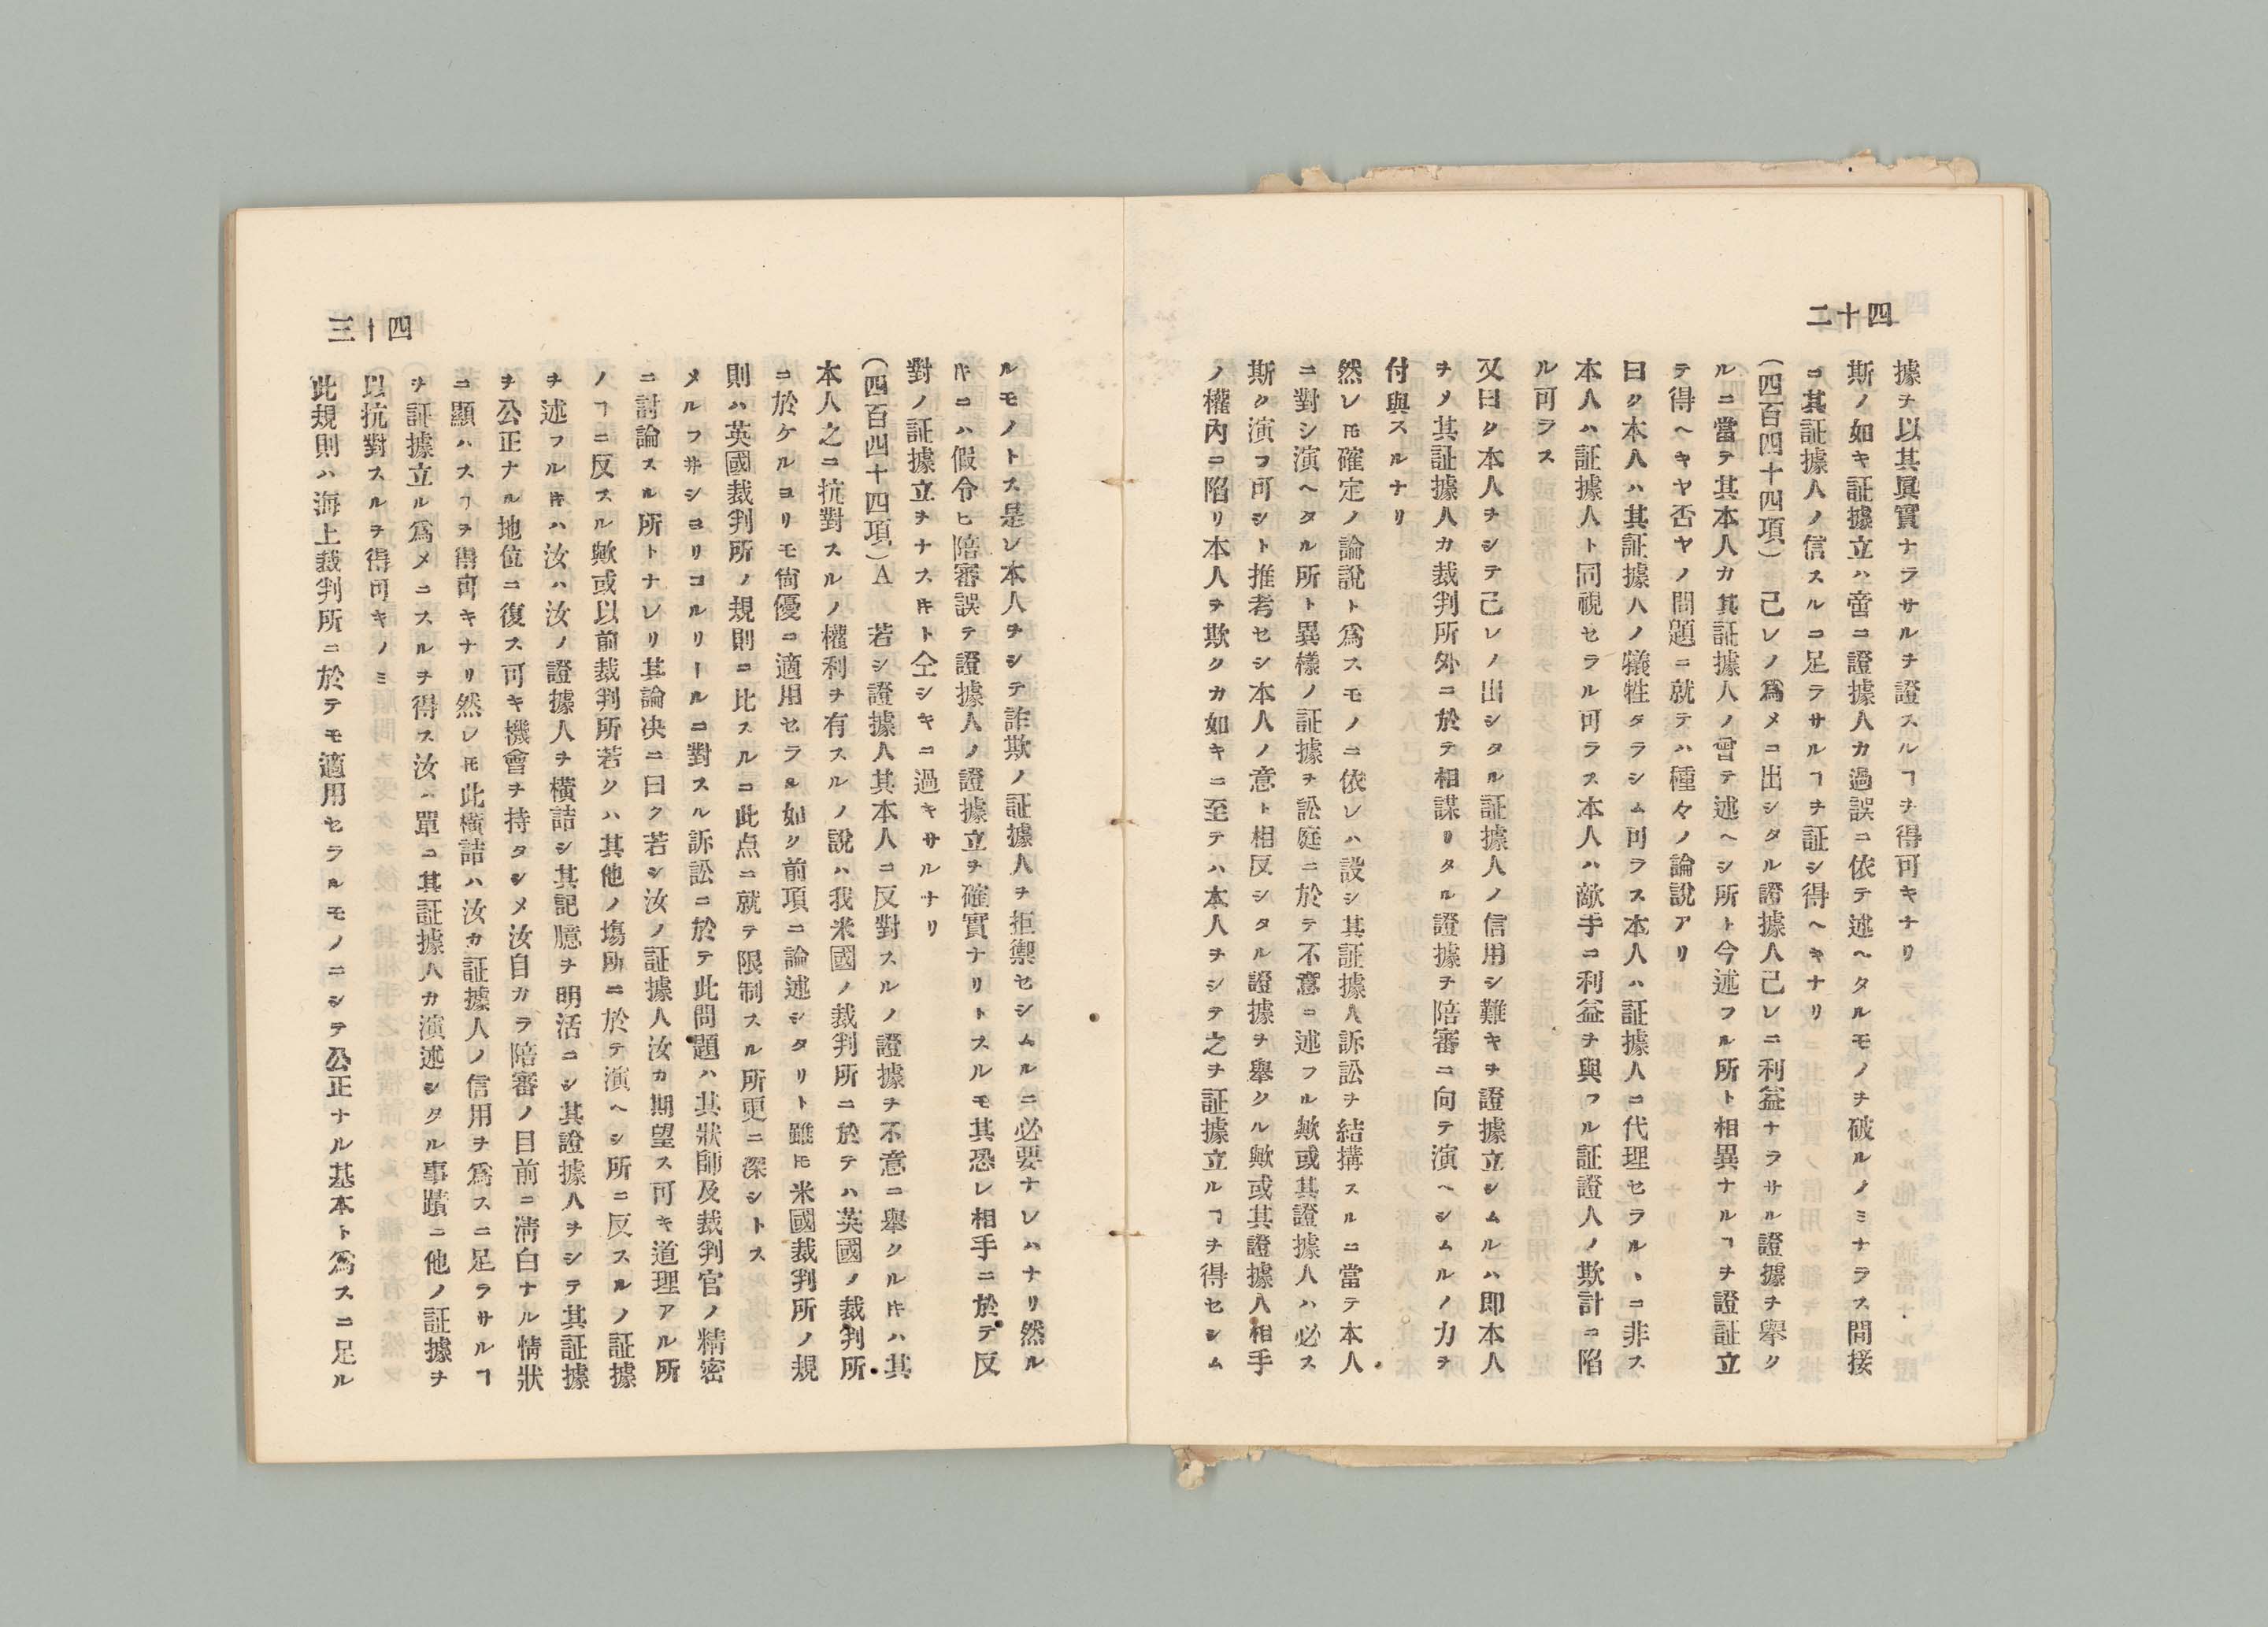 四十二
據ヲ以其眞實ナラサルヲ證スルヿヲ得可キナリ
斯ノ如キ証據立ハ啻ニ證據人カ過誤ニ依テ述ヘタルモノヲ破ルノミナラス間接
ニ其証據人ノ信スルニ足ラサルヿヲ証シ得ヘキナリ
(四百四十四項) 己レノ爲メニ出シタル證據人己レニ利益ナラサル證據ヲ舉ク
ルニ當テ其本人カ其証據人ノ曾テ述ヘシ所ト今述フル所ト相異ナルヿヲ證証立
テ得ヘキヤ否ヤノ問題ニ就テハ種々ノ論說アリ
曰ク本人ハ其証據人ノ犠牲タラシム可ラス本人ハ証據人ニ代理セラルヽニ非ス
本人ハ証據人ト同視セラル可ラス本人ハ敵手ニ利益ヲ與フル証證人ノ欺計ニ陷
ル可ラス
又曰ク本人ヲシテ己レノ出シタル証據人ノ信用シ難キヲ證據立シムルハ即本人
ヲノ其証據人カ裁判所外ニ於テ相謀リタル證據ヲ陪審ニ向テ演ヘシムルノ力ヲ
付與スルナリ
然レ𪜈確定ノ論說ト爲スモノニ依レハ設シ其証據人訴訟ヲ結搆スルニ當テ本人
ニ對シ演ヘタル所ト異樣ノ証據ヲ訟庭ニ於テ不意ニ述フル歟或其證據人ハ必ス
斯ク演フ可シト推考セシ本人ノ意ト相反シタル證據ヲ舉クル歟或其證據人相手
ノ權內ニ陷リ本人ヲ欺クカ如キニ至テハ本人ヲシテ之ヲ証據立ルヿヲ得セシム
四十三
ルモノトス是レ本人ヲシテ詐欺ノ証據人ヲ拒禦セシムルニ必要ナレハナリ然ル
𪜈ニハ假令ヒ陪審誤テ證據人ノ證據立ヲ確實ナリトスルモ其恐レ相手ニ於テ反
對ノ証據立ヲナス𪜈ト仝シキニ過キサルナリ
(四百四十四項)A 若シ證據人其本人ニ反對スルノ證據ヲ不意ニ舉クル𪜈ハ其
本人之ニ抗對スルノ權利ヲ有スルノ說ハ我米國ノ裁判所ニ於テハ英國ノ裁判所
ニ於ケルヨリモ尙優ニ適用セラル如ク前項ニ論述シタリト雖𪜈米國裁判所ノ規
則ハ英國裁判所ノ規則ニ比スルニ此点ニ就テ限制スル所更ニ深シトス
メルフ井シヨリコルリールニ對スル訴訟ニ於テ此問題ハ其狀師及裁判官ノ精密
ニ討論スル所トナレリ其論決ニ曰ク若シ汝ノ証據人汝カ期望ス可キ道理アル所
ノヿニ反スル歟或以前裁判所若クハ其他ノ塲所ニ於テ演ヘシ所ニ反スルノ証據
ヲ述フル𪜈ハ汝ハ汝ノ證據人ヲ橫詰シ其記臆ヲ明活ニシ其證據人ヲシテ其証據
ヲ公正ナル地位ニ復ス可キ機會ヲ持タシメ汝自カラ陪審ノ目前ニ淸白ナル情狀
ニ顯ハスヿヲ得可キナリ然レ𪜈此橫詰ハ汝カ証據人ノ信用ヲ爲スニ足ラサルヿ
ヲ証據立ル爲メニスルヲ得ス汝ハ單ニ其証據人カ演述シタル事蹟ニ他ノ証據ヲ
以抗對スルヲ得可キノミ
此規則ハ海上裁判所ニ於テモ適用セラルモノニシテ公正ナル基本ト爲スニ足ル